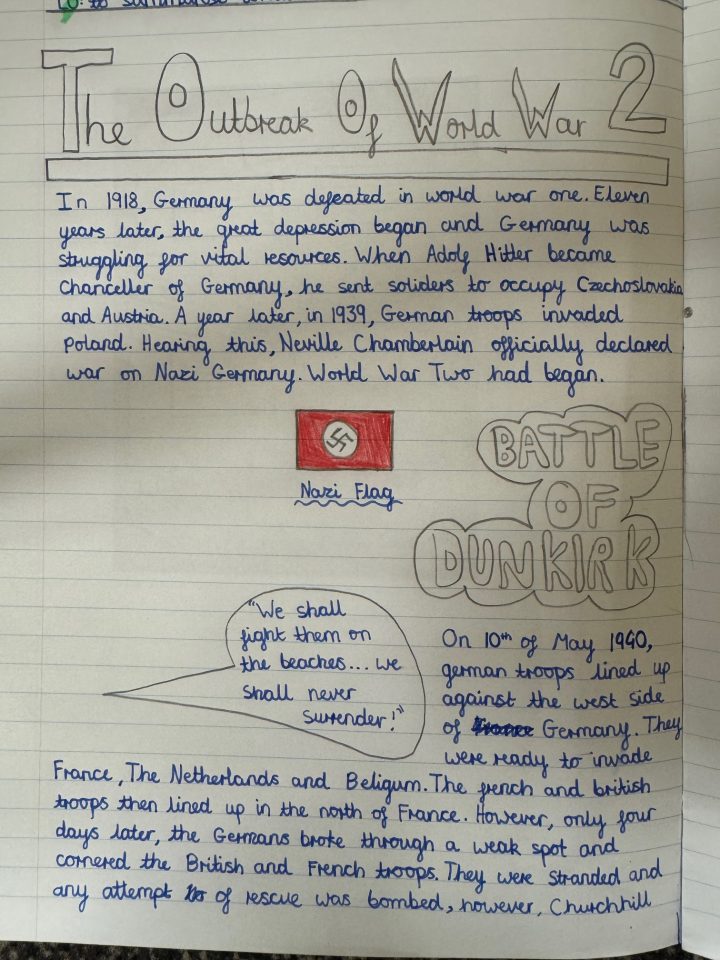 LO: to summarise
The Outbreak Of World War 2
In 1918, Germany was defeated in world war one. Eleven
years later, the great depression began and Germany was
struggling for vital resources. When Adolf Hitler became
Chanceller of Germany, he sent soliders to occupy Czechoslovakia
and Austria. A year later, in 1939, German troops invaded
Poland. Hearing this, Neville Chamberlain officially declared
war on Nazi Germany. World War Two had began.
Nazi Flag
BATTLE
OF
DUNKIRK
"We shall
fight them on
the beaches... we
shall never
surrender!"
On 10th of May 1940,
german troops lined up
against the west side
of Germany. They
were ready to invade
France, The Netherlands and Beligum. The french and british
troops then lined up in the north of France. However, only four
days later, the Germans broke through a weak spot and
cornered the British and French troops. They were stranded and
any attempt of rescue was bombed, however, Churchhill